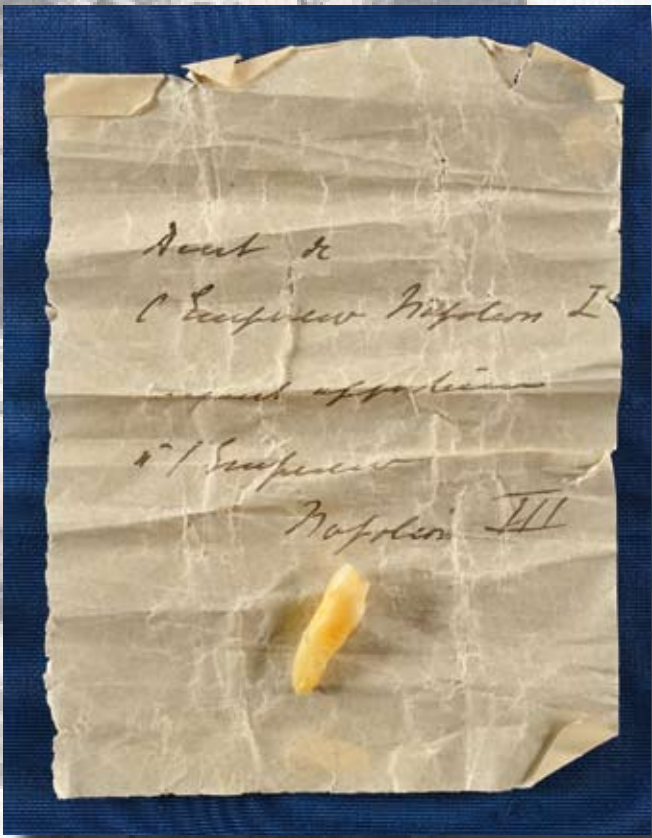 Dent de
l'Empereur Napoléon I
ayant appartenu
à l'Empereur
Napoléon III